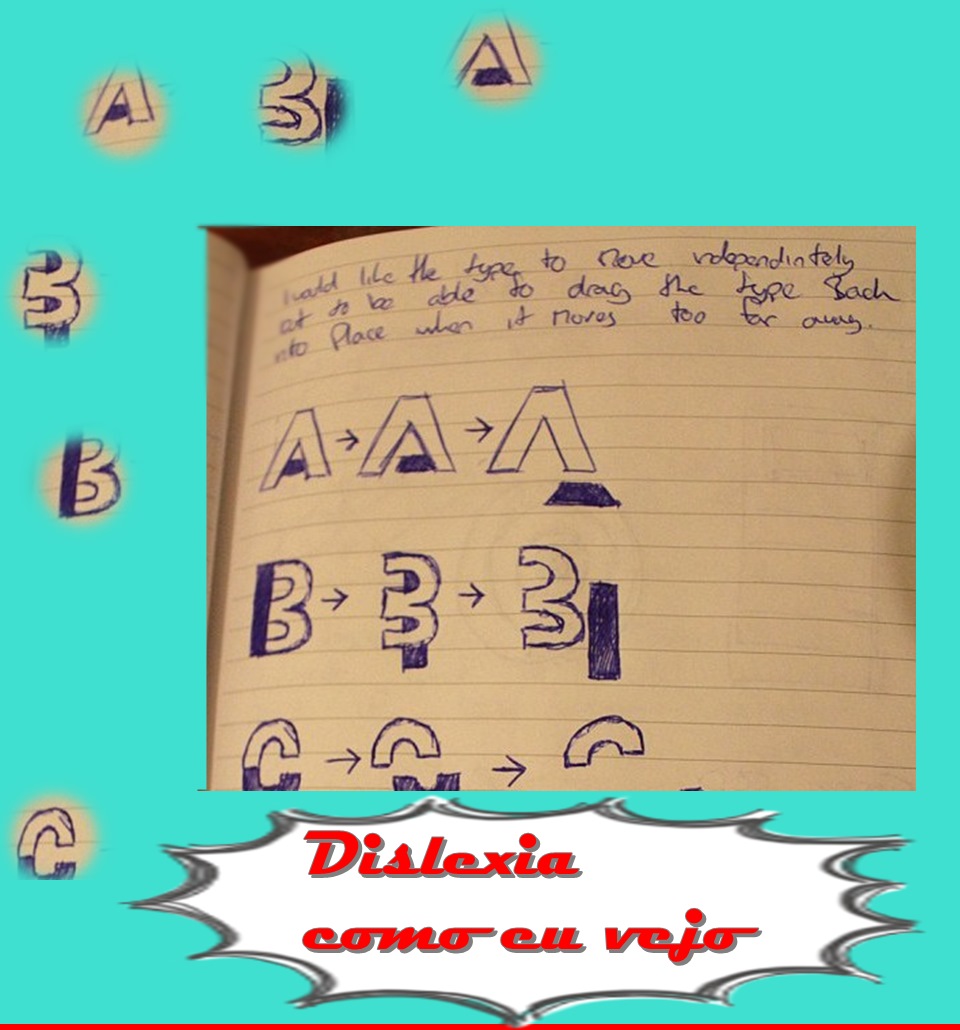 A
A
B
I would like the type to Move
to be able to drag the type Back
into Place when it Moves too far away.
B
A → A → A
B
B → B → B
C → C → C
C
Dislexia
como eu vejo